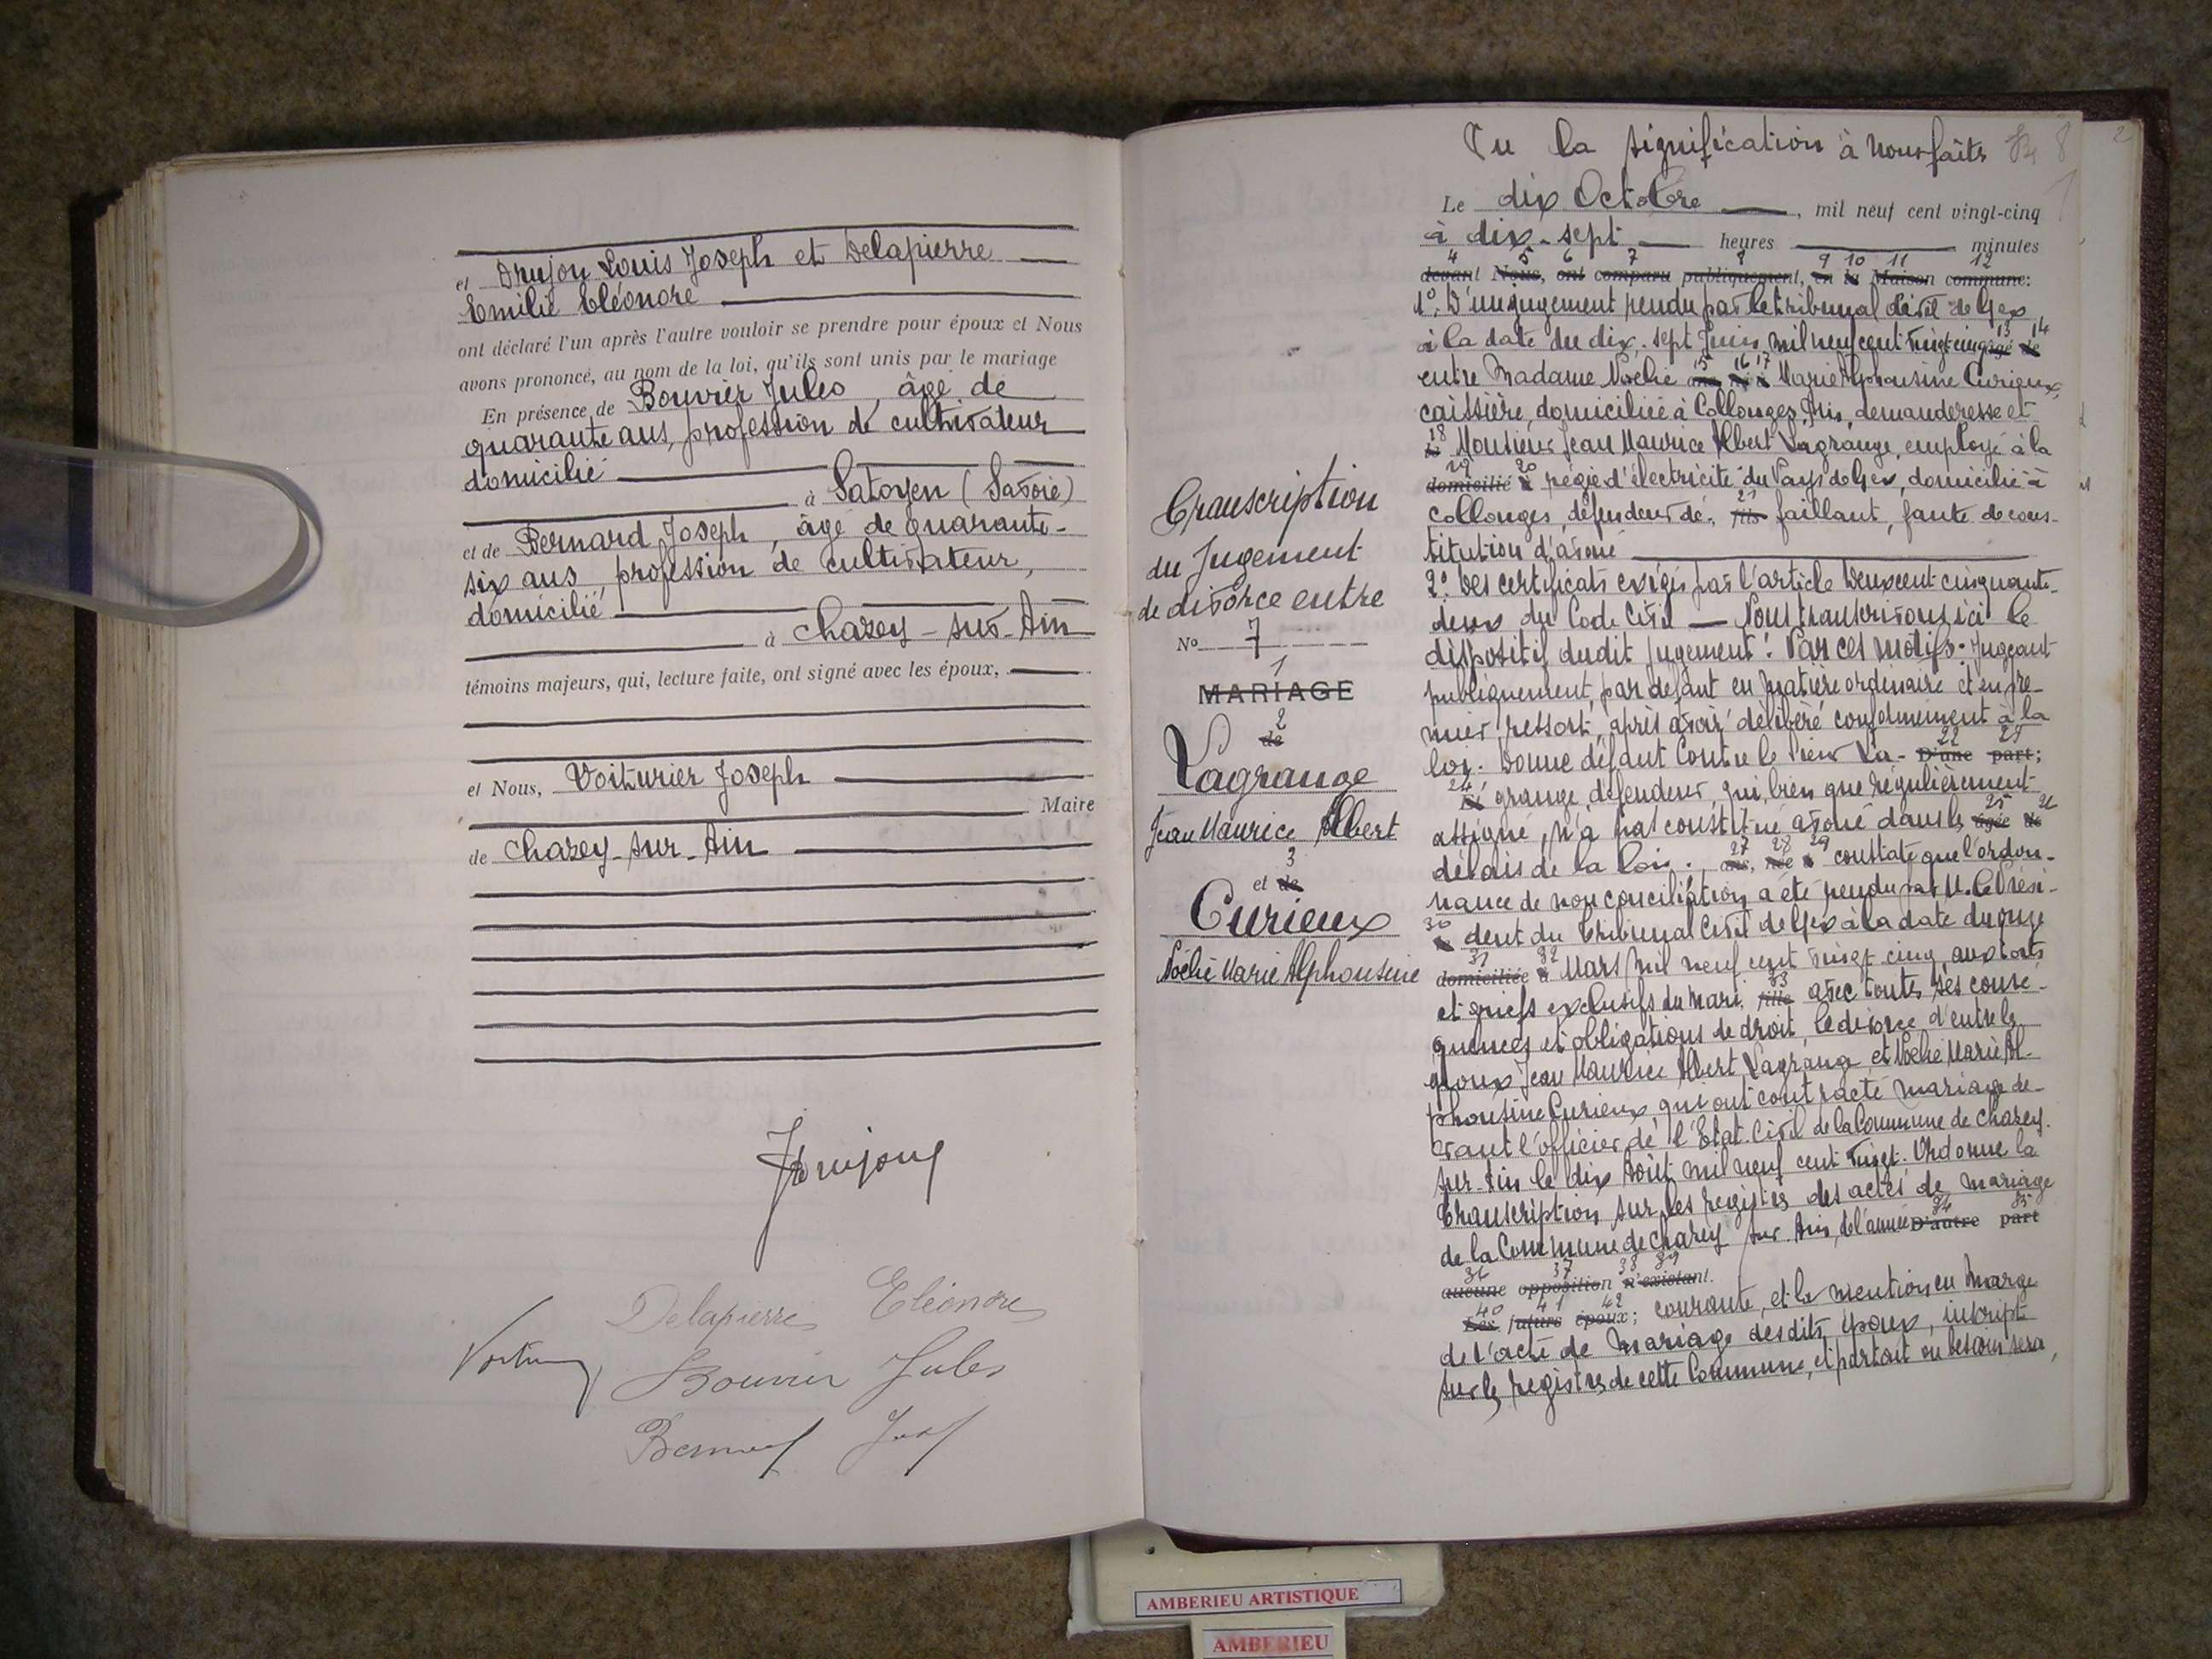 et Drujon Louis Joseph et Delapierre
Emilie Eléonore
ont déclaré l'un après l'autre vouloir se prendre pour époux et Nous
avons prononcé, au nom de la loi, qu'ils sont unis par le mariage
En présence de Bouvier Jules, âgé de
quarante ans, profession de cultivateur
domicilié
à Satoyen (Savoie)
et de Bernard Joseph, âgé de quarante-
six ans, profession de cultivateur,
domicilié
à Chazey-sur-Ain
témoins majeurs, qui, lecture faite, ont signé avec les époux,
et Nous, Voiturier Joseph
Maire
de Chazey-sur-Ain
Delapierre Eléonore
Bouvier Jules
Transcription
du Jugement
de divorce entre
No 7
1
MARIAGE
2
de
Lagrange
Jean Maurice Albert
3
et de
Curieux
Noélie Marie Alphonsine
Vu la signification à nous faite
Le dix Octobre, mil neuf cent vingt-cinq
à dix-sept heures minutes
4 5 6 7 8 9 10 11 12
devant Nous, ont comparu publiquement, en la Maison commune:
1°. D'un jugement rendu par le tribunal civil de Gex,
13 14
à la date du dix-sept Juin mil neuf cent vingt cinq âgé de
15 16 17
entre Madame Noélie ans, né à Marie Alphonsine Curieux,
caissière, domiciliée à Collonges, Ain, demanderesse et
18
le Monsieur Jean Maurice Albert Lagrange, employé à la
19 20
domicilié à régie d'électricité du Pays de Gex, domicilié à
21
Collonges, défendeur dé- fils faillant, faute de cons-
titution d'avoué
2°. Des certificats exigés par l'article Deux cent cinquante-
deux du Code Civil — Nous transcrivons ici le
dispositif dudit jugement: Par ces motifs. Jugeant
publiquement, par défaut en matière ordinaire et en pre-
mier ressort, après avoir délibéré conformément à la
22 23
loi. Donne défaut contre le sieur La- D'une part;
24
Et grange, défendeur, qui, bien que régulièrement
25 26
assigné, n'a pas constitué avoué dans les âgée de
27 28 29
délais de la loi. ans, née à constate que l'ordon-
nance de non conciliation a été rendu par M. le Prési-
30
dent du Tribunal Civil de Gex à la date du onze
31 32
domiciliée à Mars mil neuf cent vingt cinq, aux torts
33
et griefs exclusifs du mari, fille avec toutes ses consé-
quences et obligations de droit, le divorce d'entre les
époux Jean Maurice Albert Lagrange et Noélie Marie Al-
phonsine Curieux, qui ont contracté mariage de-
vant l'officier de l'Etat-Civil de la Commune de Chazey-
sur-Ain le dix Août mil neuf cent vingt. Ordonne la
Transcription sur les registres des actes de mariage
34 35
de la Commune de Chazey sur Ain, de l'année D'autre part
36 37 38 39
aucune opposition n'existant.
40 41 42
Les futurs époux; courante, et la mention en marge
de l'acte de mariage desdits époux, inscript
sur les registres de cette Commune, et partout où besoin sera,
AMBERIEU ARTISTIQUE
AMBERIEU